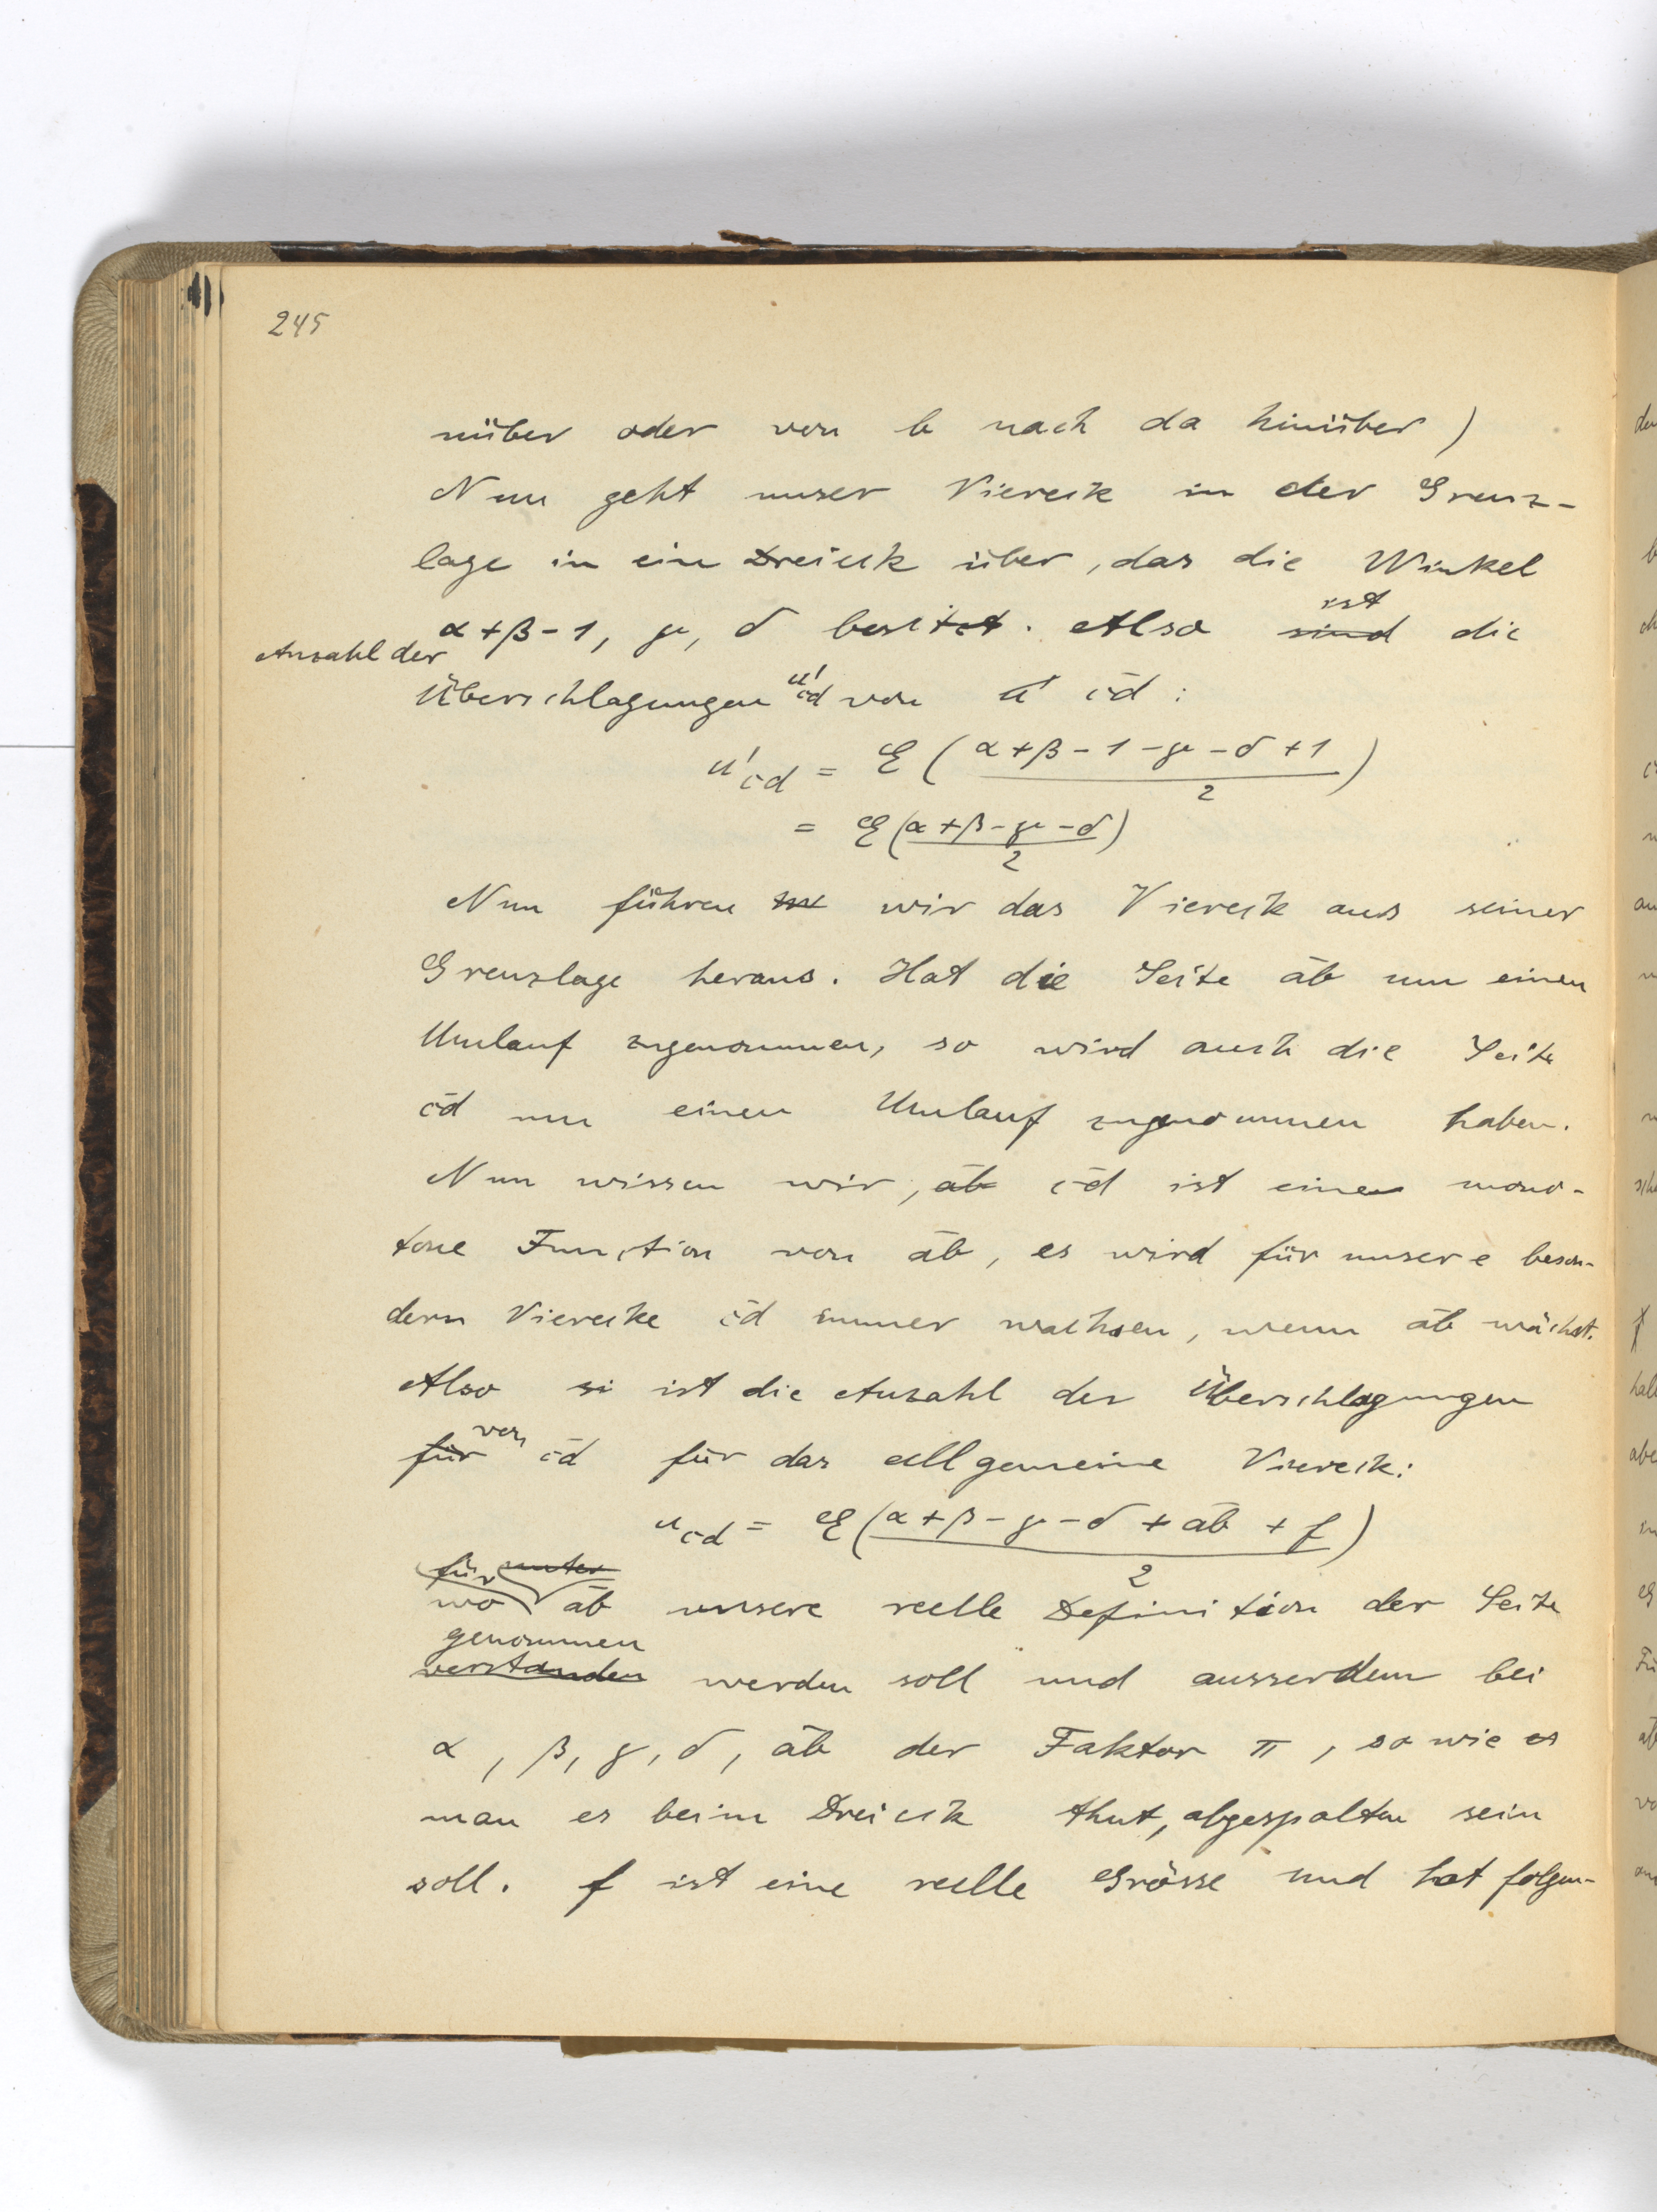 245
nüber oder von b nach da hinüber)
Nun geht unser Viereck in der Grenz-
lage in ein Dreieck über, das die Winkel
α+β-1, γ, δ besitzt. Also ~~sind~~ ist die
Anzahl der
Überschlagungen u'c̄d von ~~u'~~ c̄d:
u'c̄d = E (α+β-1-γ-δ+1 / 2)
= E (α+β-γ-δ / 2)
Nun führen wir das Viereck aus seiner
Grenzlage heraus. Hat die Seite āb um einen
Umlauf zugenommen, so wird auch die Seite
c̄d um einen Umlauf zugenommen haben.
Nun wissen wir, ~~āb~~ c̄d ist eine mono-
tone Function von āb, es wird für unsere beson-
dern Vierecke c̄d immer wachsen, wenn āb wächst.
Also ~~si~~ ist die Anzahl der Überschlagungen
~~für~~ von c̄d für das allgemeine Viereck:
uc̄d = E (α+β-γ-δ+āb+f / 2)
für ~~unter~~
wo āb unsere reelle Definition der Seite
genommen
~~verstanden~~ werden soll und ausserdem bei
α, β, γ, δ, āb der Faktor π, so wie ~~es~~
man es beim Dreieck thut, abgespalten sein
soll. f ist eine reelle Grösse und hat folgen-